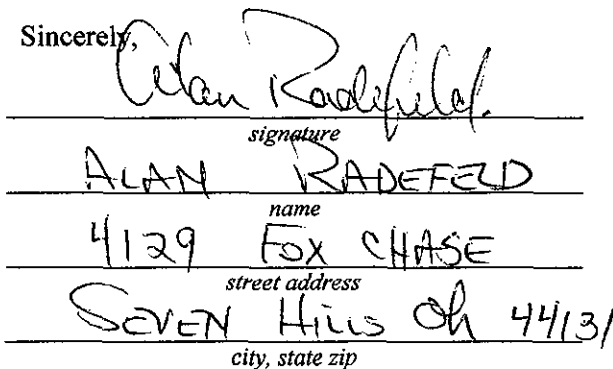 Sincerely,
Alan Radefeld.
signature
ALAN RADEFELD
name
4129 FOX CHASE
street address
SEVEN HILLS Oh 44131
city, state zip